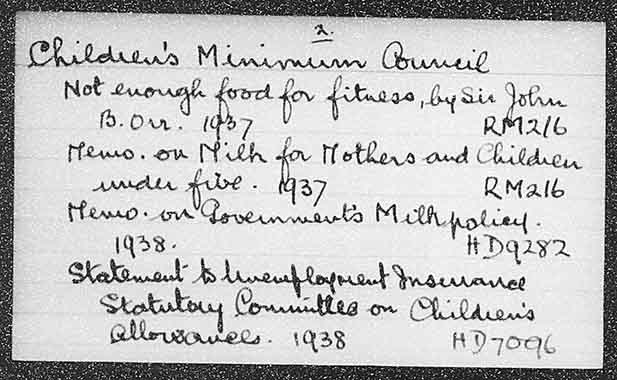 2.
Children's Minimum Council
Not enough food for fitness, by Sir John
B. Orr. 1937 RM216
Memo. on Milk for Mothers and Children
under five. 1937 RM216
Memo. on Government's Milk policy.
1938. HD9282
Statement to Unemployment Insurance
Statutory Committee on Children's
allowances. 1938 HD7096